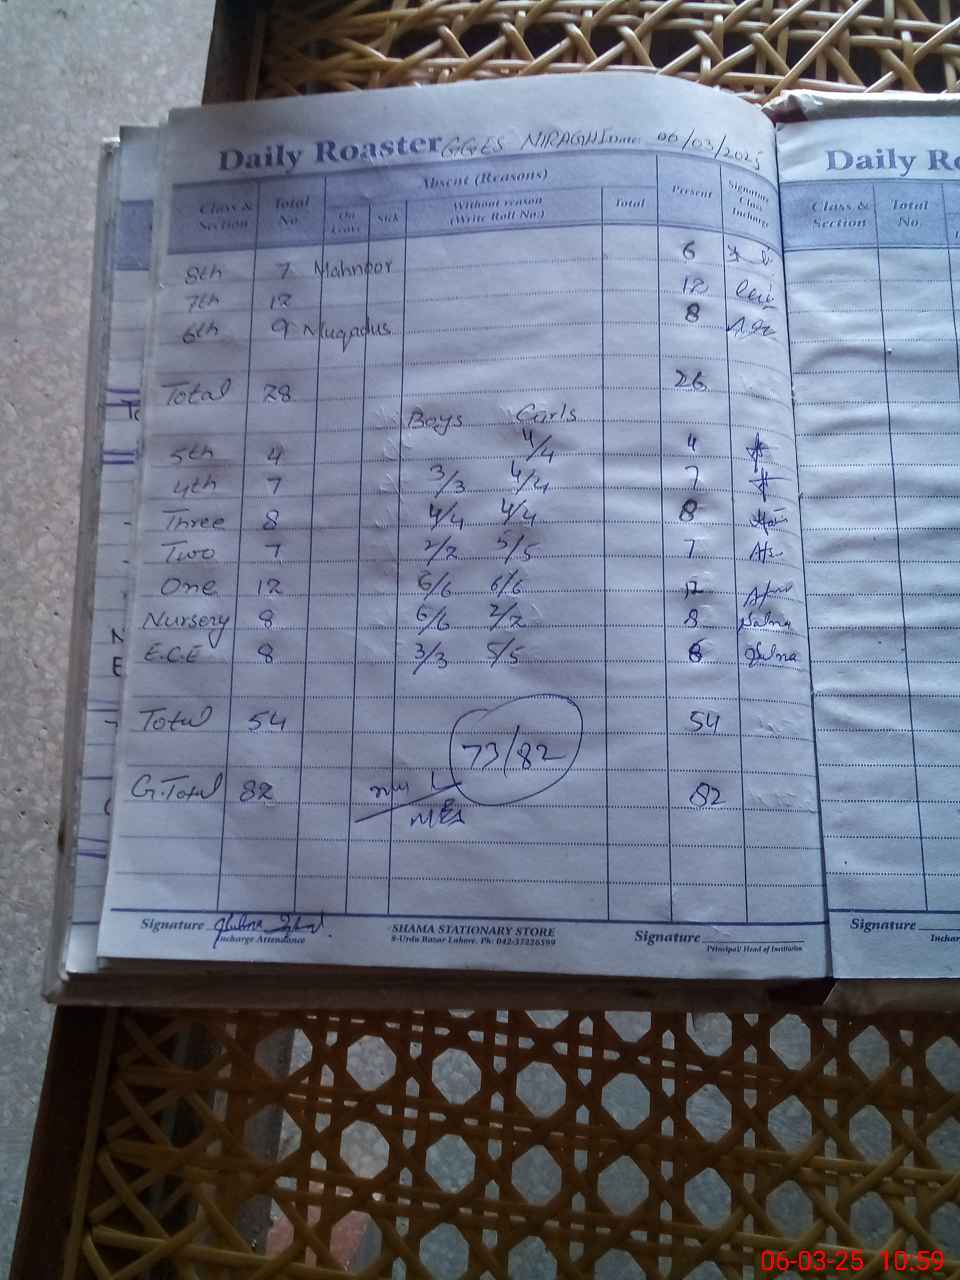 Daily Roaster GGES NIRAGHI Date: 06/03/2025
Class & Section Total No. Absent (Reasons) Present Signature Class Incharge
On Leave Sick Without reason (Write Roll No.) Total
8th 7 Mahnoor 6
7th 12 12
6th 9 Muqadus 8
Total 28 26
Boys Girls
5th 4 4/4 4
4th 7 3/3 4/4 7
Three 8 4/4 4/4 8
Two 7 2/2 5/5 7
One 12 6/6 6/6 12
Nursery 8 6/6 2/2 8 Salma
E.C.E 8 3/3 5/5 8
Total 54 54
73/82
G.Total 82 82
Signature
Incharge Attendance
SHAMA STATIONARY STORE
8-Urdu Bazar Lahore. Ph: 042-37226599
Signature
Principal/ Head of Institution
Daily Ro
Class & Section Total No.
Signature
Inchar
06-03-25 10:59